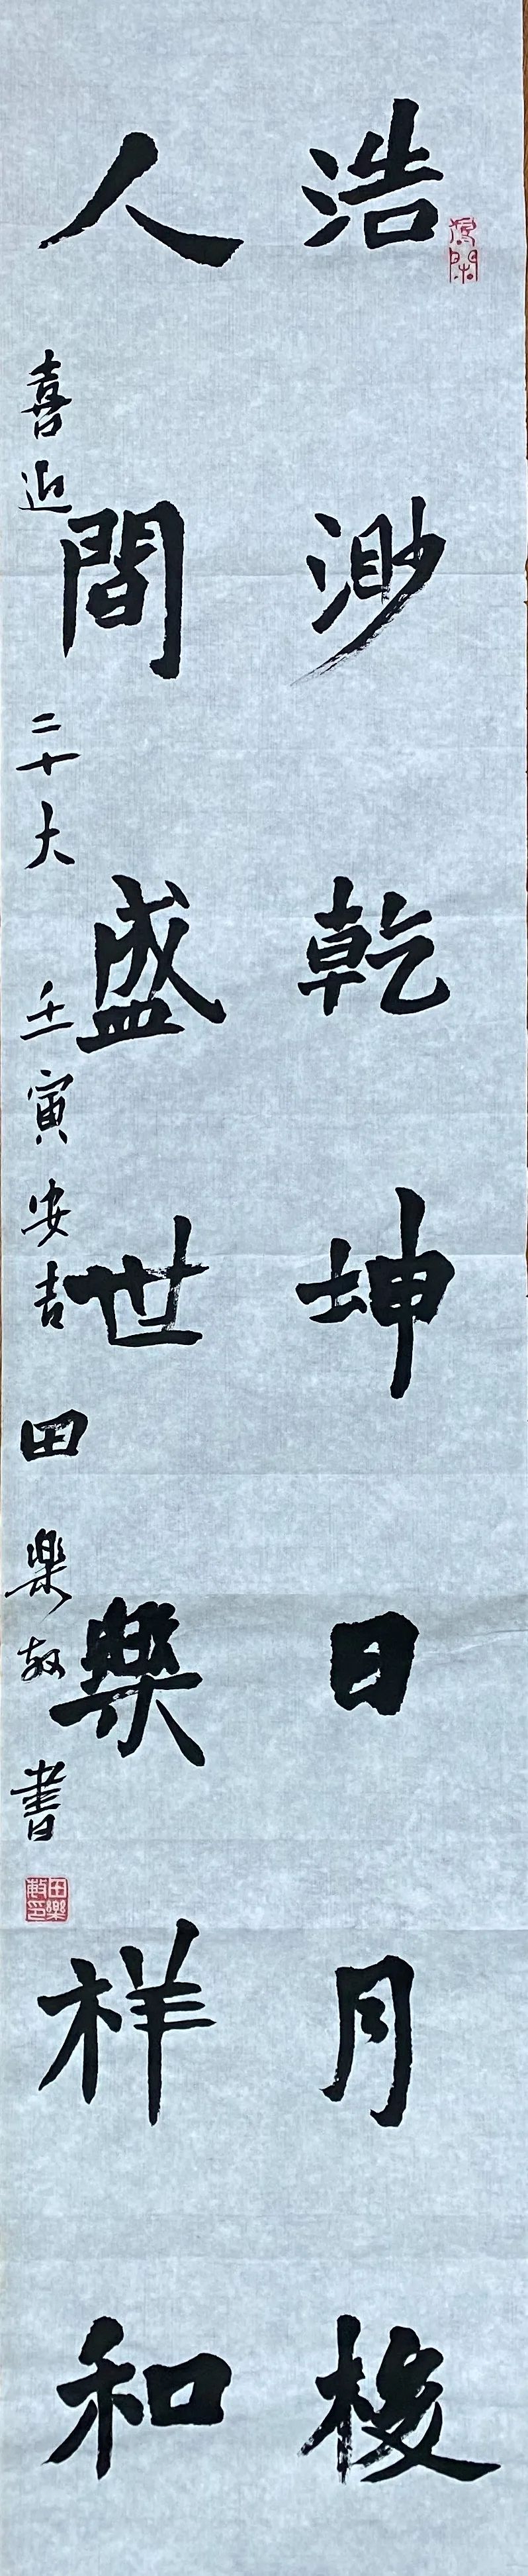 浩渺乾坤日月梭
人間盛世樂祥和
喜迎二十大 壬寅安吉田樂敏書
田樂敏印